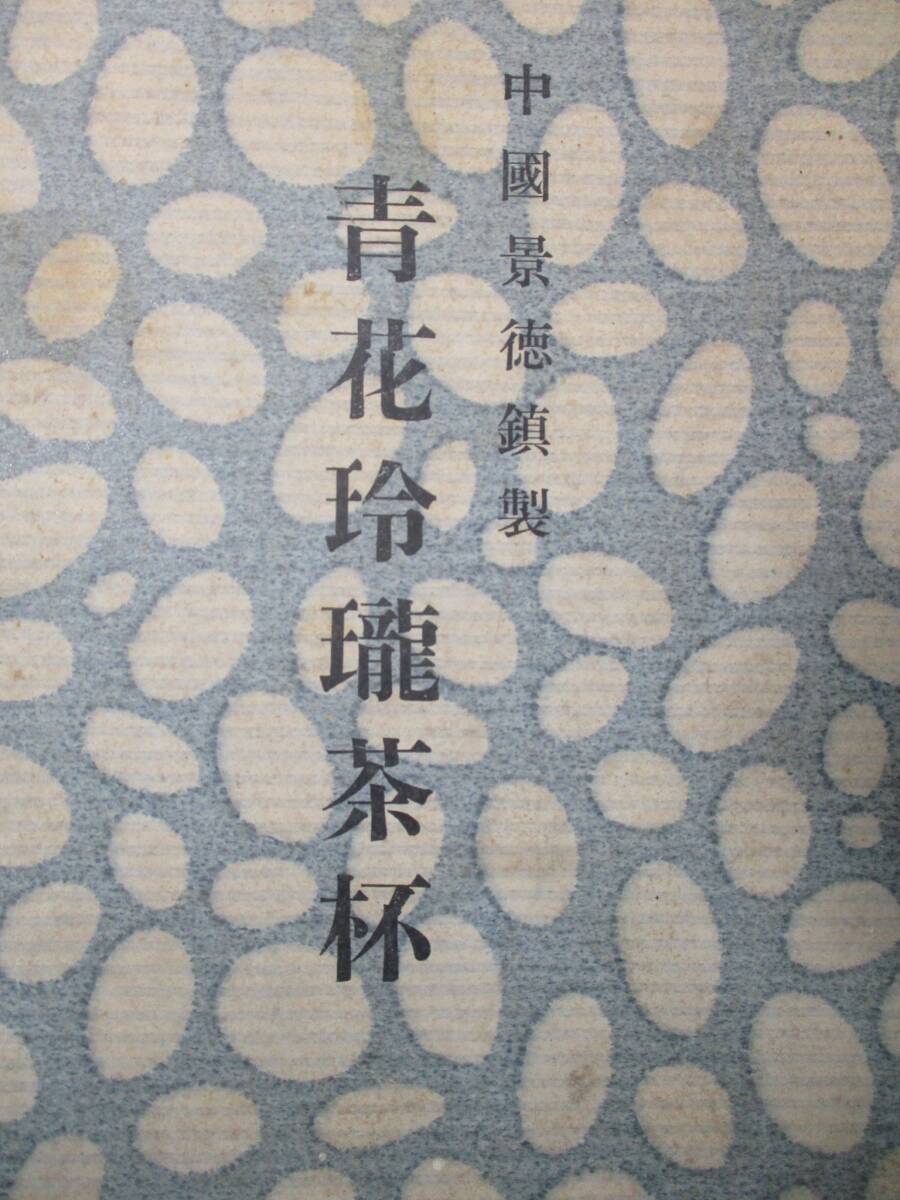 中國景徳鎮製
青花玲瓏茶杯